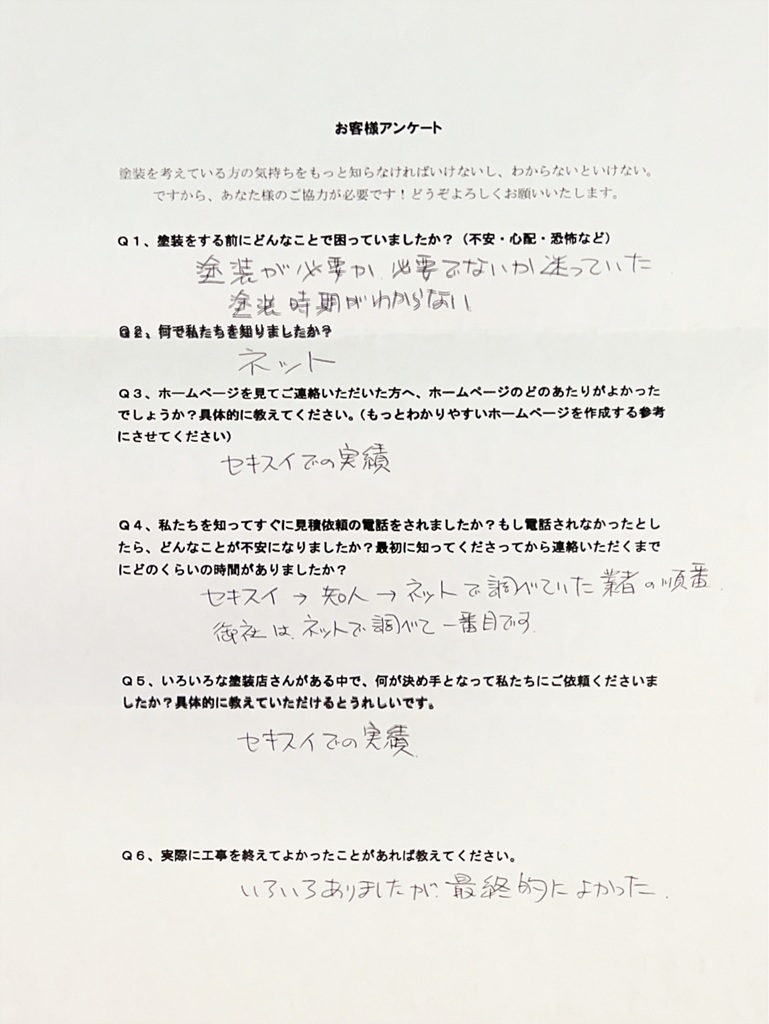 お客様アンケート
塗装を考えている方の気持ちをもっと知らなければいけないし、わからないといけない。
ですから、あなた様のご協力が必要です！どうぞよろしくお願いいたします。
Ｑ１、塗装をする前にどんなことで困っていましたか？（不安・心配・恐怖など）
塗装が必要か、必要でないか迷っていた
塗装時期がわからない
Ｑ２、何で私たちを知りましたか？
ネット
Ｑ３、ホームページを見てご連絡いただいた方へ、ホームページのどのあたりがよかった
でしょうか？具体的に教えてください。（もっとわかりやすいホームページを作成する参考
にさせてください）
セキスイでの実績
Ｑ４、私たちを知ってすぐに見積依頼の電話をされましたか？もし電話されなかったとし
たら、どんなことが不安になりましたか？最初に知ってくださってから連絡いただくまで
にどのくらいの時間がありましたか？
セキスイ→知人→ネットで調べていた業者の順番.
御社は、ネットで調べて一番目です.
Ｑ５、いろいろな塗装店さんがある中で、何が決め手となって私たちにご依頼くださいま
したか？具体的に教えていただけるとうれしいです。
セキスイでの実績.
Ｑ６、実際に工事を終えてよかったことがあれば教えてください。
いろいろありましたが、最終的によかった.